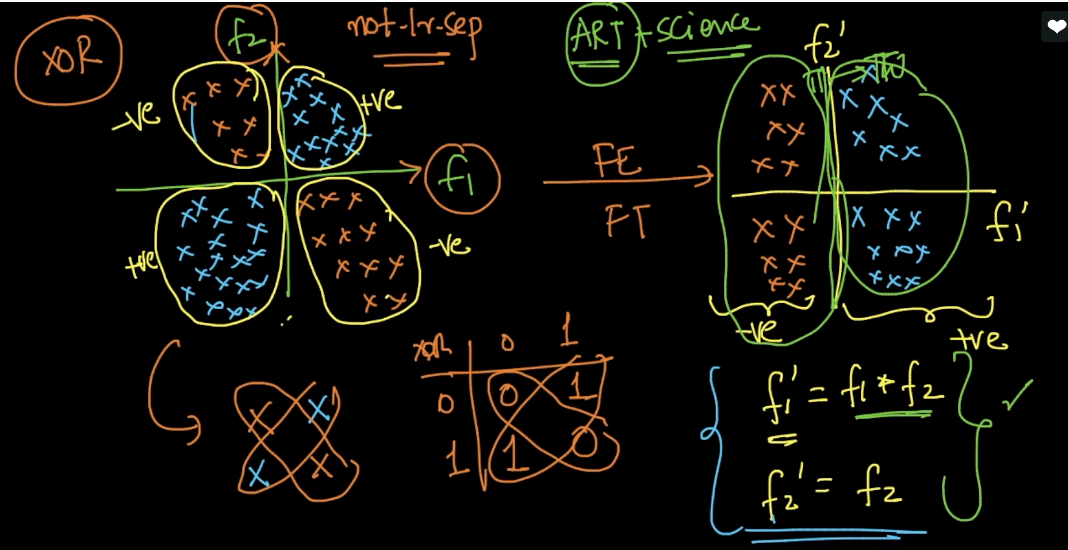 XOR
f2
not-lr-sep
ART + science
f2'
-ve
+ve
f1
FE
FT
f1'
+ve
-ve
-ve
+ve
XOR 0 1
0 0 1
1 1 0
f1' = f1 * f2
f2' = f2